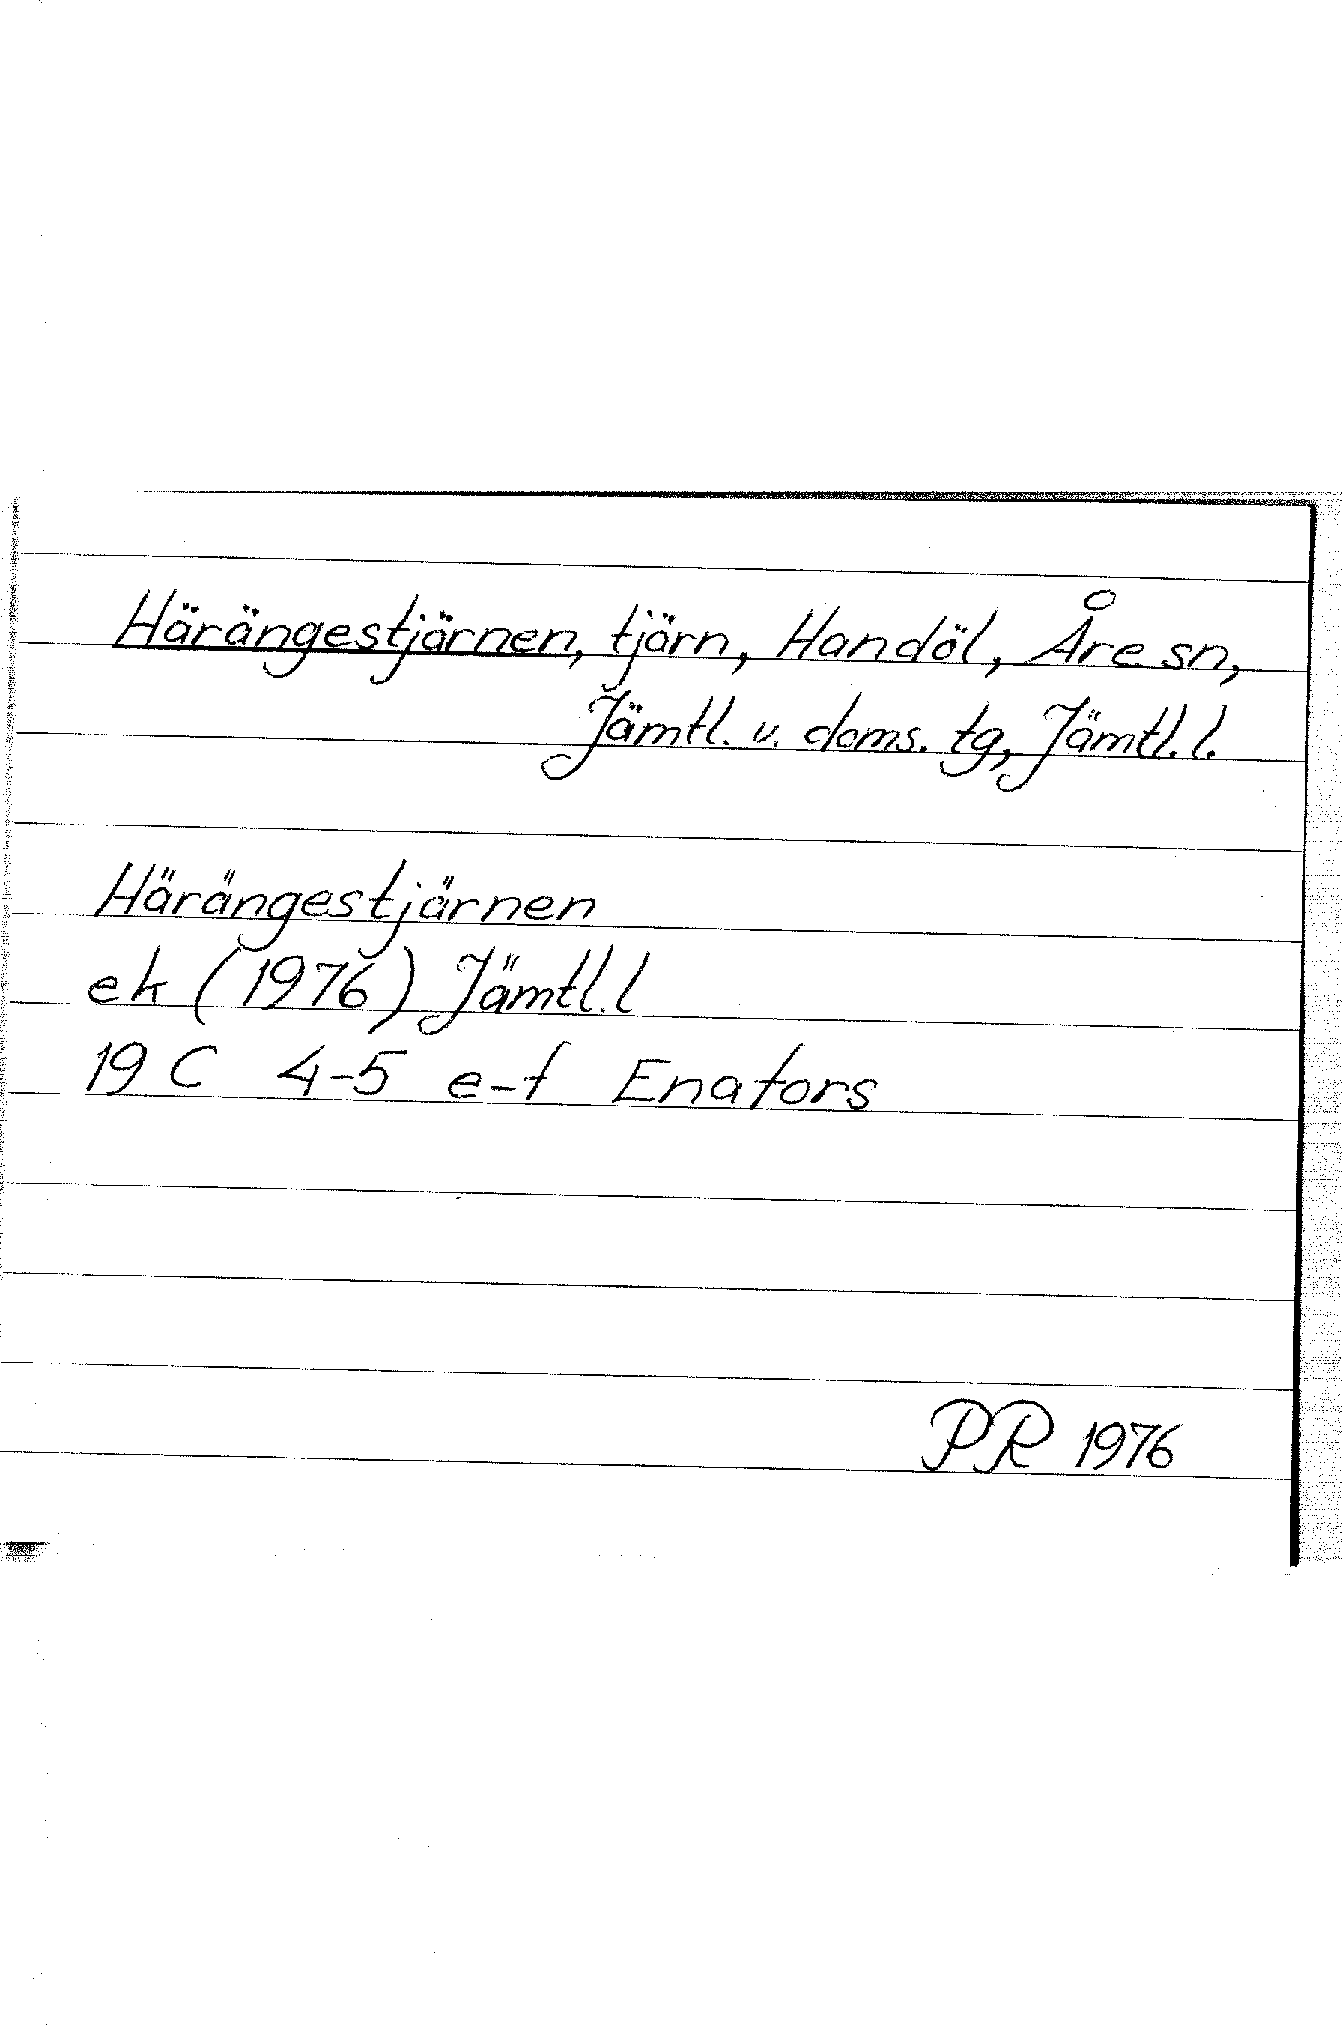 Härängestjärnen, tjärn, Handöl, Åre sn,
Jämtl. v. doms. tg, Jämtl. l.
Härängestjärnen
ek (1976) Jämtl. l
19 C 4-5 e-f Enafors
PR 1976